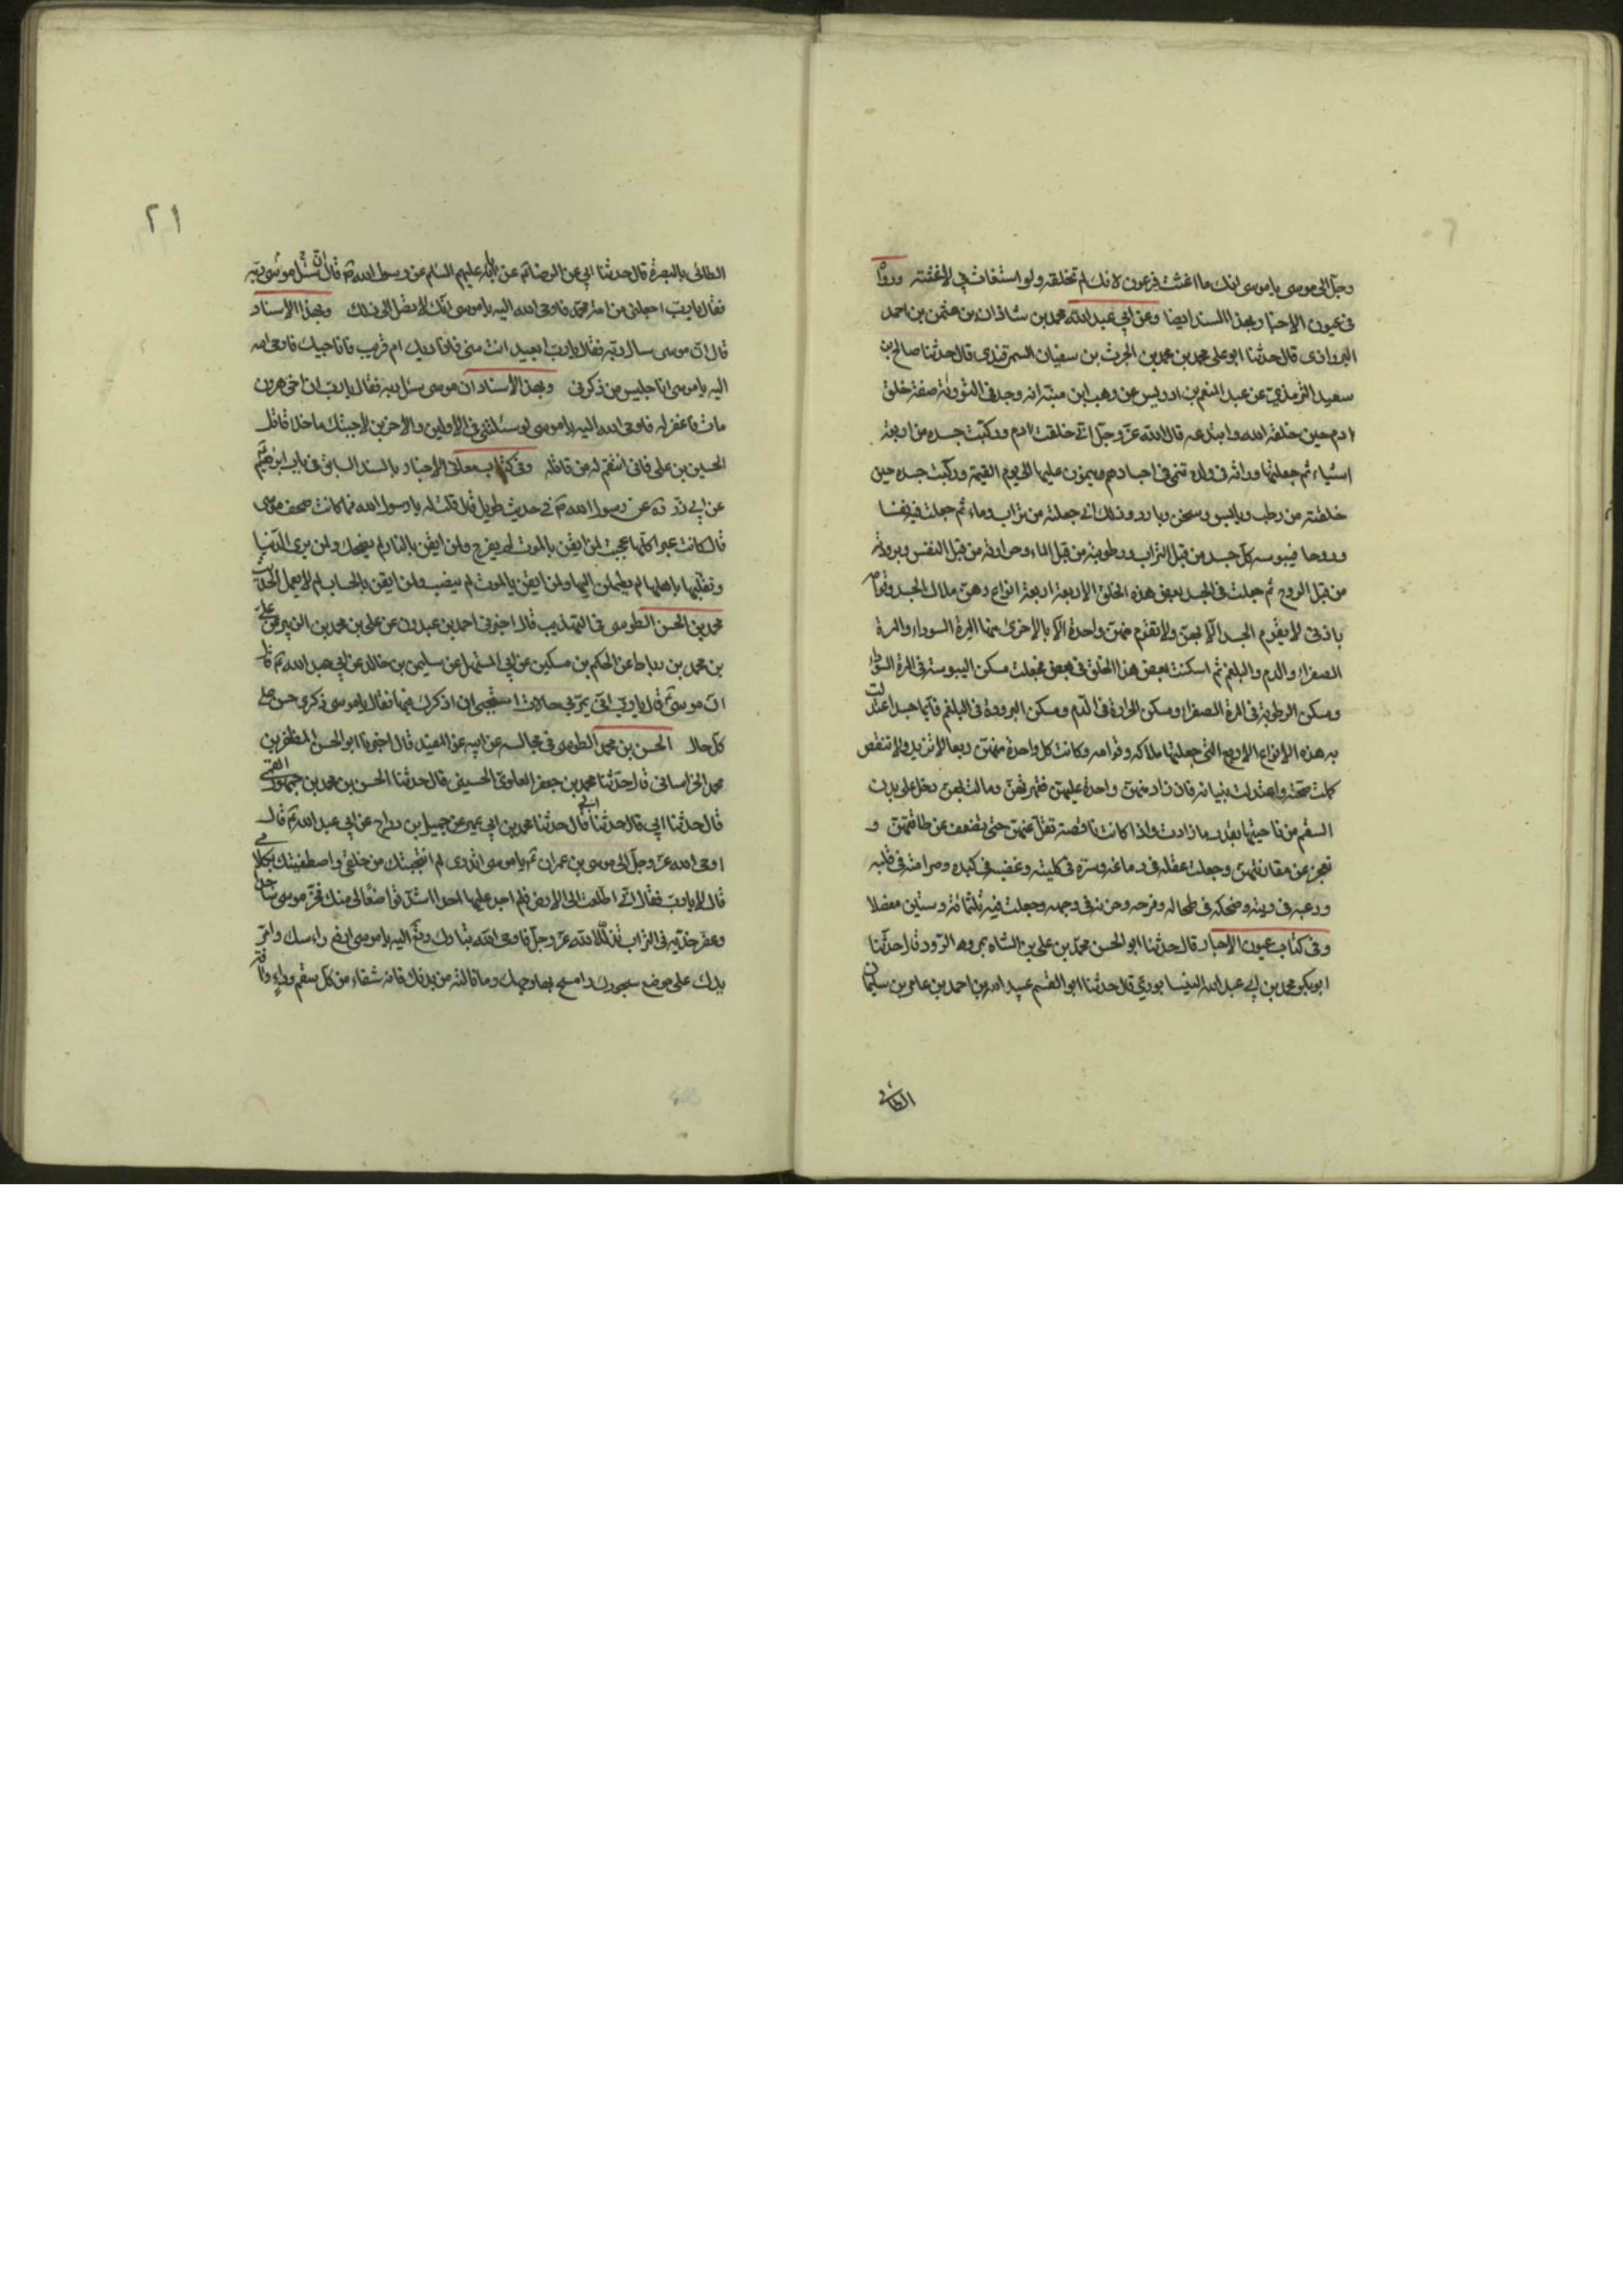 وجل الى موسى يا موسى انك ما اغثت فرعون لانك لم تخلقه ولو استغاث بي لاغثته ورواه
فى عيون الاخبار بهذا السند ايضا وعن ابي عبد الله محمد بن شاذان بن عثمن بن احمد
البروازى قال حدثنا ابو على محمد بن محمد بن الحرث بن سفيان السمرقندى قال حدثنا صالح بن
سعيد الترمذي عن عبد المنعم بن ادريس عن وهب ابن منبه انه وجد فى التورية صفة خلق
ادم حين خلقه الله وابتدعه قال الله عز وجل انى خلقت ادم وركبت جسده من اربعة
اشياء ثم جعلتها وراثة فى ولده تنمى فى اجسادهم وينمون عليها الى يوم القيمة وركبت جسده حين
خلقته من رطب ويابس وسخن وبارد وذلك انى جعلته من تراب وماء ثم جعلت فيه نفسا
وروحا فيبوسة كل جسد من قبل التراب ورطوبته من قبل الماء وحرارته من قبل النفس وبرودته
من قبل الروح ثم جعلت فى الجسد بعض هذه الخلق الاربعة اربعة انواع وهن ملاك الجسد وقوامه
باذنى لا يقوم الجسد الا بهن ولا تقوم منهن واحدة الا بالاخرى منها المرة السوداء والمرة
الصفراء والدم والبلغم ثم اسكنت بعض هذا الخلق فى بعض فجعلت مسكن اليبوسة فى المرة السوداء
ومسكن الرطوبة فى المرة الصفرا ومسكن الحرارة فى الدم ومسكن البرودة فى البلغم فايما جسد اعتدلت
به هذه الانواع الاربع التى جعلتها ملاكه وقوامه وكانت كل واحدة منهن ربعا لا تزيد ولا تنقص
كملت صحته واعتدلت بنيانه فان زاد منهن واحدة عليهن فقهرتهن ومالت بهن دخل على بدن
السقم من ناحيتها بقدر ما زادت واذا كانت ناقصة تقل عنهن حتى تضعف عن طاقتهن و
تعجز عن مقارنتهن وجعلت عقله فى دماغه وسره فى كليته وغضبه فى كبده وصرامته فى قلبه
ورعبه فى ريته وضحكه فى طحاله وفرحه وحزنه فى وجهه وجعلت فيه ثلثمائة وستين مفصلا
وفى كتاب عيون الاخبار قال حدثنا ابو الحسن محمد بن على بن الشاه بمرو الرود قال حدثنا
ابو بكر محمد بن ابى عبد الله النيسابوري قال حدثنا ابو القسم عبيد الله بن احمد بن عامر بن سليمان
الطائى
٢١
الطائى بالبصرة قال حدثنا ابي عن الرضا عن ابائه عليهم السلام عن رسول الله ص قال ان سئل موسى ربه
فقال يا رب اجعلنى من امة محمد فاوحى الله اليه يا موسى انك لا تصل الى ذلك وبهذا الاسناد
قال ان موسى سال ربه فقال يا رب ابعيد انت منى فاناديك ام قريب فاناجيك فاوحى الله
اليه يا موسى انا جليس من ذكرنى وبهذا الاسناد ان موسى سئل ربه فقال يا رب ان اخى هرون
مات فاغفر له فاوحى الله اليه يا موسى لو سئلتنى فى الاولين والاخرين لاجبتك ما خلا قاتل
الحسين بن على فانى انتقم له من قاتله وفى كتاب معانى الاخبار بالسند السابق فى باب ابرهيم
عن ابى ذر ره عن رسول الله ص فى حديث طويل قال قلت له يا رسول الله فما كانت صحف موسى
قال كانت عبرا كلها عجبت لمن ايقن بالموت لم يفرح ولمن ايقن بالنار لم يضحك ولمن يرى الدنيا
وتقلبها باهلها لم يطمئن اليها ولمن ايقن بالموت لم ينصب ولمن ايقن بالحساب لم لا يعمل
محمد بن الحسن الطوسى فى التهذيب قال اخبرنى احمد بن عبدون عن على بن محمد بن الزبير عن على
بن محمد بن رباط عن الحكم بن مسكين عن ابى المستهل عن سليمن بن خالد عن ابي عبد الله ع قال
ان موسى ع قال يا رب انى يمر بي حالات استحيى ان اذكرك فيها فقال يا موسى ذكرى حسن على
كل حال الحسن بن محمد الطوسى فى مجالسه عن ابيه عن المفيد قال اخبرنا ابو الحسن المظفر بن
محمد الخراسانى قال حدثنا محمد بن جعفر العلوى الحسينى قال حدثنا الحسن بن محمد بن جمهور القمى
قال حدثنا ابى قال حدثنا قال حدثنا محمد بن ابى عمير عن جميل بن دراج عن ابي عبد الله ع قال
اوحى الله عز وجل الى موسى بن عمران ع يا موسى اتدرى لم انتجبتك من خلقى واصطفيتك بكلامى
قال لا يا رب فقال انى اطلعت الى الارض فلم اجد عليها احدا اشد تواضعا لى منك فخر موسى ساجدا
وعفر خديه فى التراب تذللا لله عز وجل فاوحى الله تبارك وتع اليه يا موسى ارفع راسك وامر
يدك على موضع سجودك وامسح بها وجهك وما نالته من بدنك فانه شفاء من كل سقم وداء